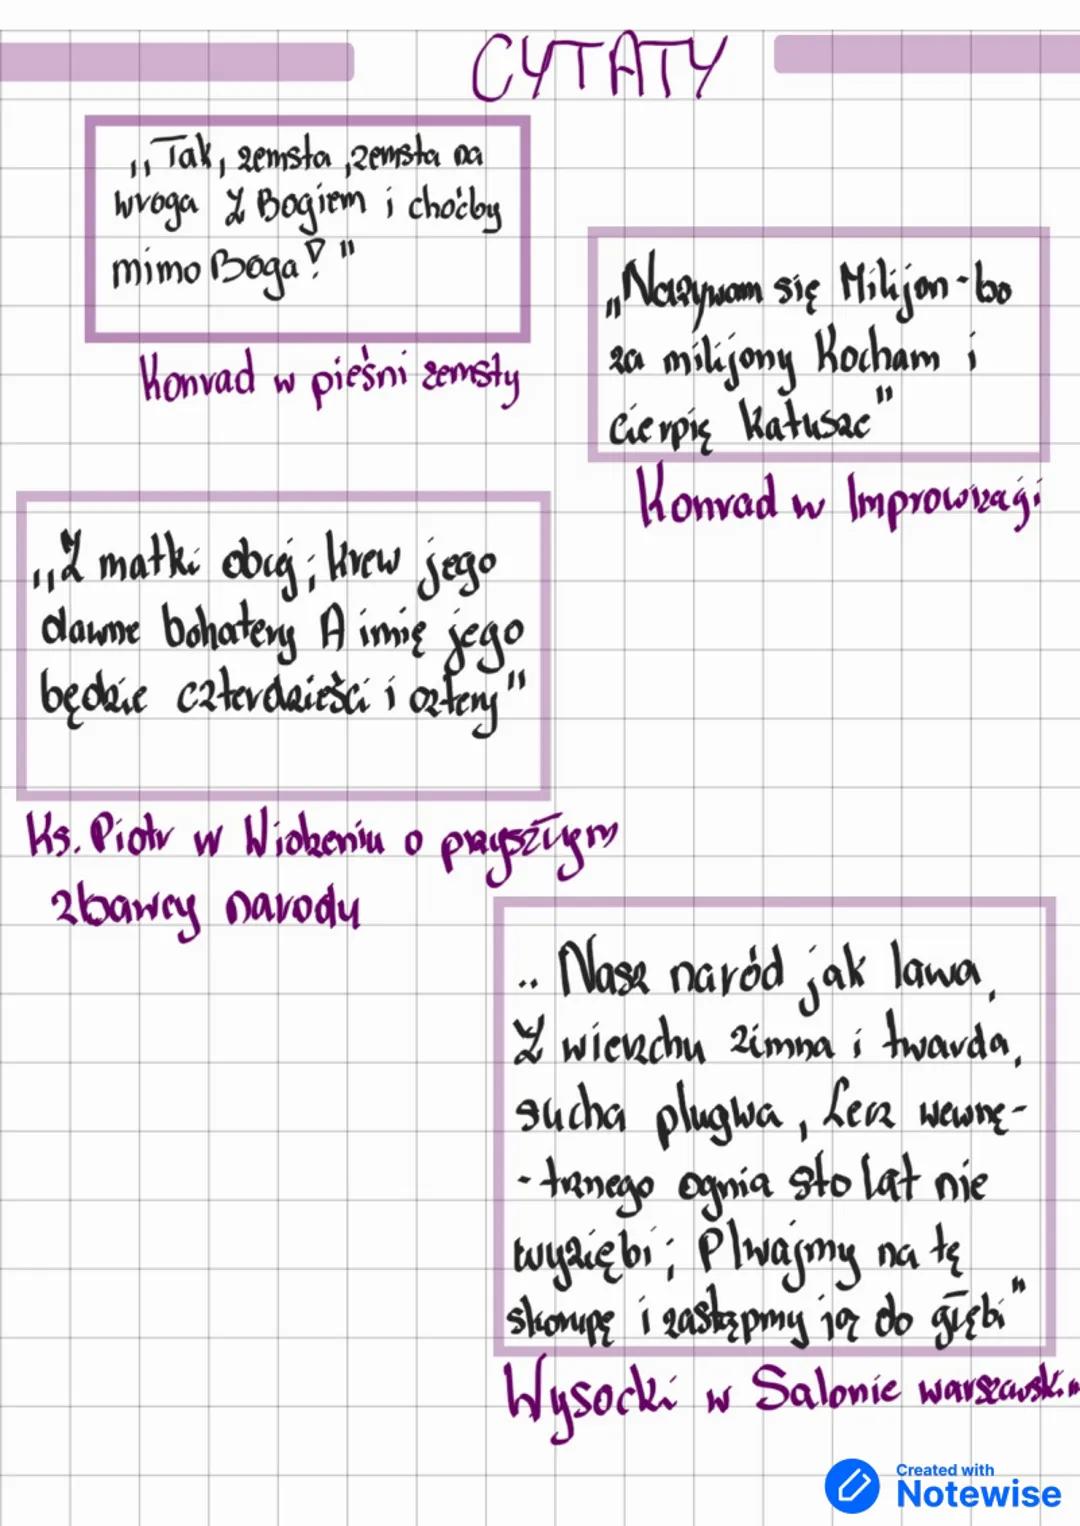 CYTATY
,,Tak, zemsta, zemsta na
wroga Z Bogiem i choćby
mimo Boga!"
Konrad w pieśni zemsty
„Nazywam się Milijon-bo
za milijony Kocham i
cierpię Katusze"
Konrad w Improwizacji
,,Z matki obcej; krew jego
dawne bohatery A imię jego
będzie czterdzieści i cztery"
Ks. Piotr w Widzeniu o przyszłym
zbawcy narodu
.. Nasz naród jak lawa,
Z wierzchu zimna i twarda,
sucha plugwa, Lecz wewnę-
-trznego ognia sto lat nie
wyziębi; Plwajmy na tę
skorupę i zastąpmy ją do głębi"
Wysocki w Salonie warszawskim
Created with
Notewise